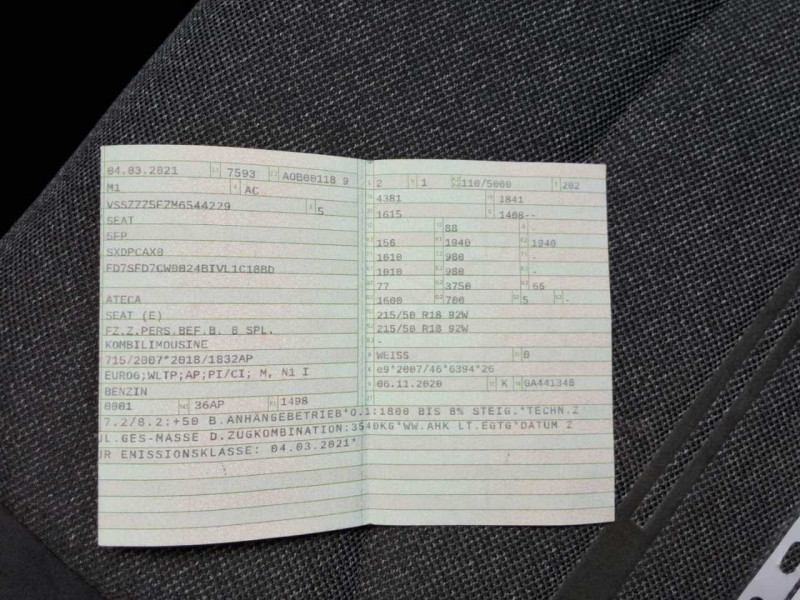 04.03.2021 7593 AOB00118 9
M1 AC
VSSZZZ5FZM6544229 5
SEAT
5FP
SXDPCAX0
FD7SFD7CW0024BIVL1C18BD
ATECA
SEAT (E)
FZ.Z.PERS.BEF.B. 8 SPL.
KOMBILIMOUSINE
715/2007*2018/1832AP
EURO6;WLTP;AP;PI/CI; M, N1 I
BENZIN
0001 36AP 1498
2 1 110/5000 202
4381 1841
1615 1408--
88 -
156 1940 1940
1010 980 -
1010 980 -
77 3750 66
1600 700 5 -
215/50 R18 92W
215/50 R18 92W
-
WEISS 0
e9*2007/46*6394*26
06.11.2020 K GA441348
7.2/8.2:+50 B.ANHÄNGEBETRIEB*O.1:1800 BIS 8% STEIG.*TECHN.Z
UL.GES-MASSE D.ZUGKOMBINATION:3540KG*WW.AHK LT.EGTG*DATUM Z
UR EMISSIONSKLASSE: 04.03.2021*